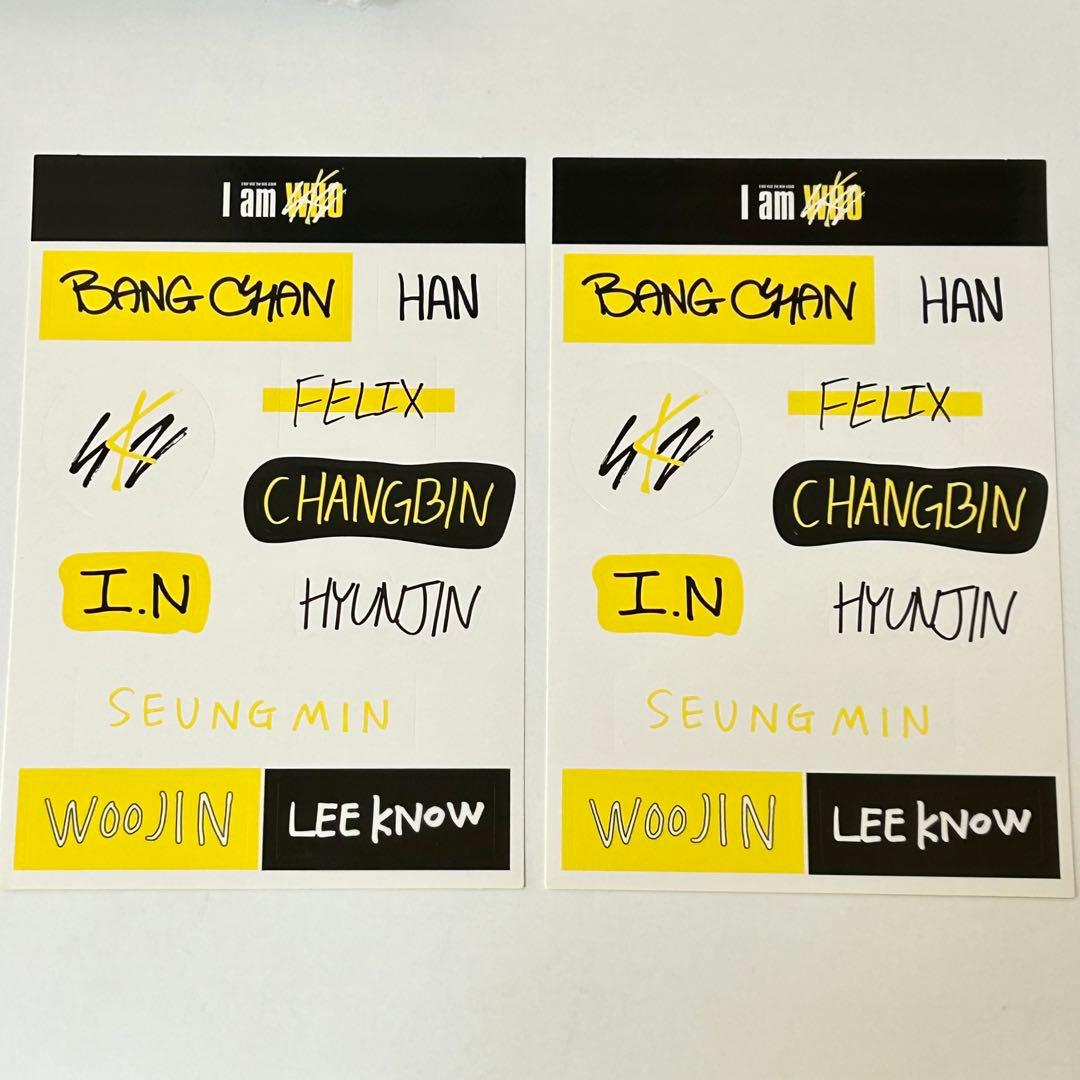 I am WHO
BANG CHAN
HAN
FELIX
SKZ
CHANGBIN
I.N
HYUNJIN
SEUNGMIN
WOOJIN
LEE KNOW
I am WHO
BANG CHAN
HAN
FELIX
SKZ
CHANGBIN
I.N
HYUNJIN
SEUNGMIN
WOOJIN
LEE KNOW